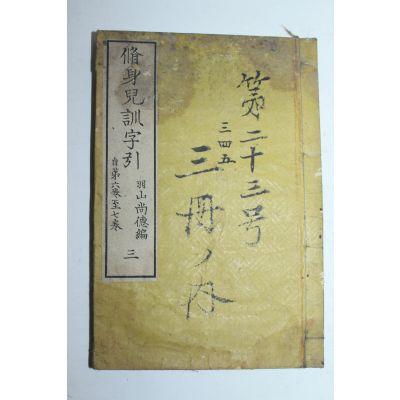 第二十三号
三四五
三冊ノ内
脩身兒訓字引
自第六巻至七巻
羽山尚德編
三